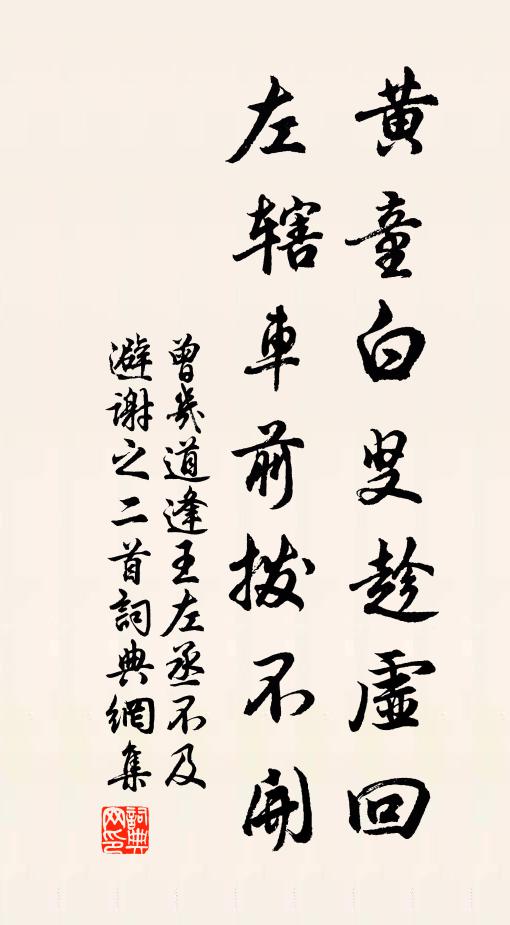 黄童白叟趁虛回
左轄車前拨不開
曾幾道逢王左丞不及
避謝之二首詞典網集
詞典網印